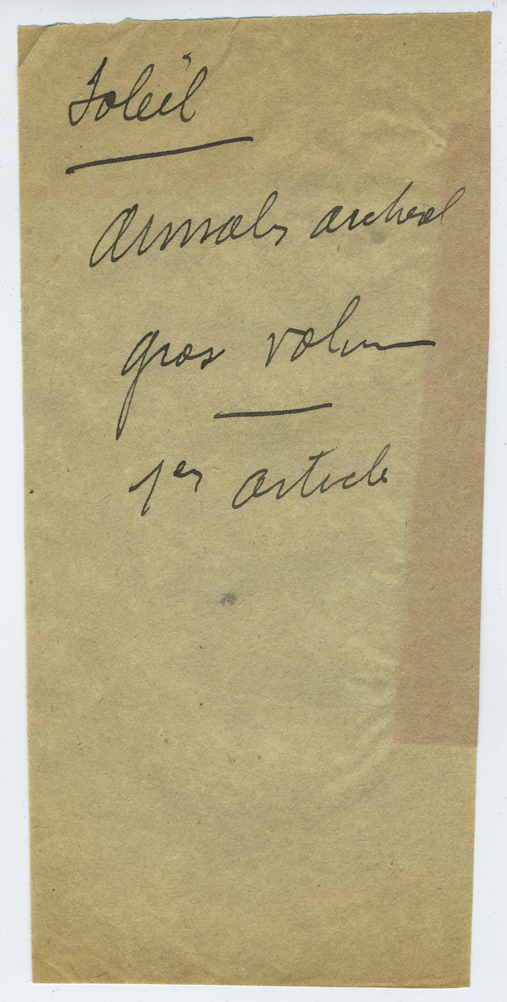 Soleil
Annales archeol
gros volum
1er article